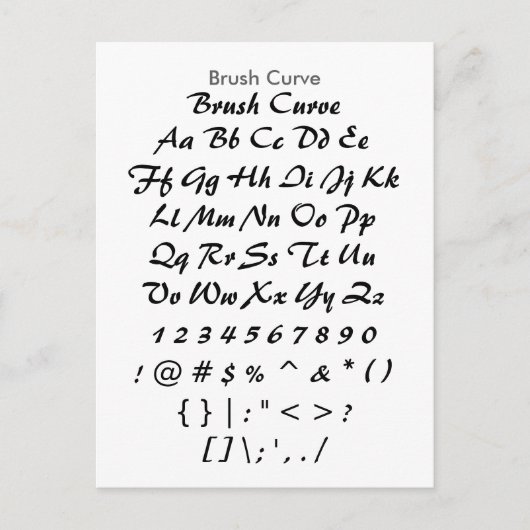 Brush Curve
Brush Curve
Aa Bb Cc Dd Ee
Ff Gg Hh Ii Jj Kk
Ll Mm Nn Oo Pp
Qq Rr Ss Tt Uu
Vv Ww Xx Yy Zz
1 2 3 4 5 6 7 8 9 0
! @ # $ % ^ & * ( )
{ } | : " < > ?
[ ] \ ; ' , . /